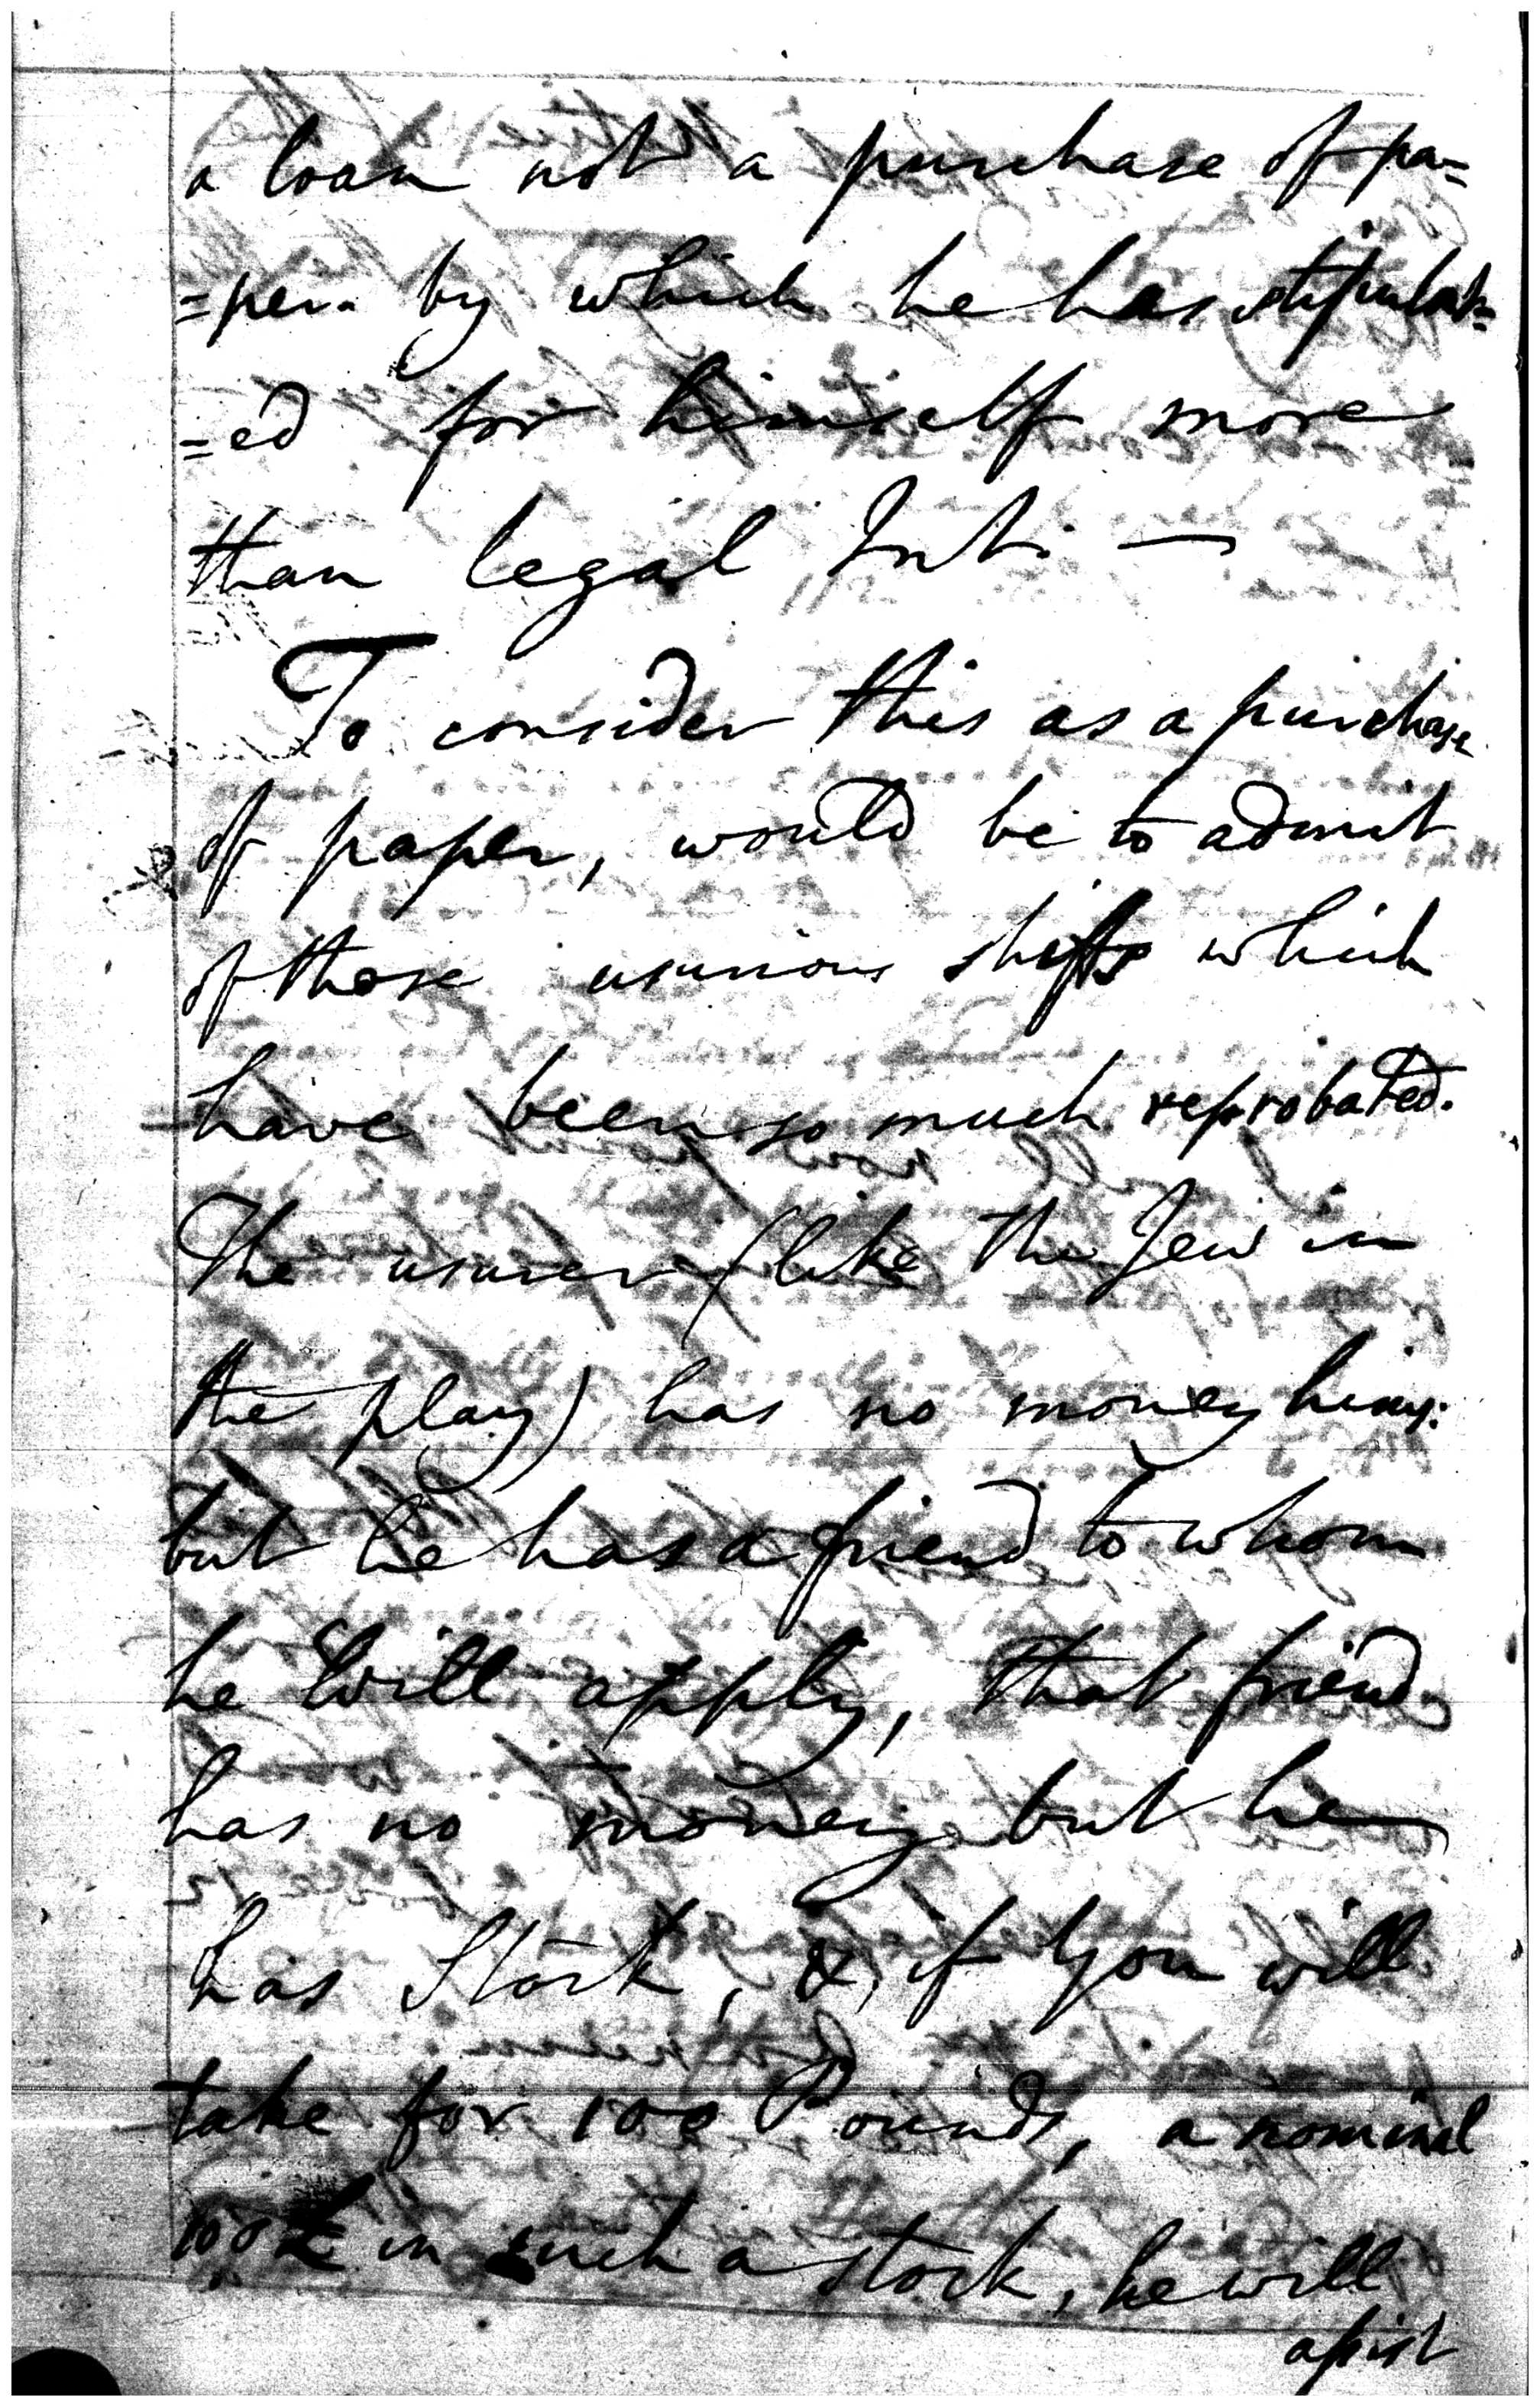 a loan not a purchase of pa=
=per. by which he has stipulat=
=ed for himself more
than legal Int. —
To consider this as a purchase
of paper, would be to admit
of those usurious shifts which
have been so much reprobated.
The usurer (like the Jew in
the play) has no money hims:
but he has a friend to whom
he will apply, that friend
has no money but he
has Stock, & if You will
take for 100 Pounds, a nominal
100£ in such a stock, he will
assist